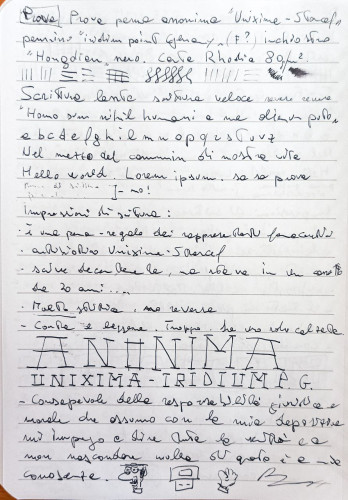 Prova) Prova penna anonima "Unixime - Storcef
pennino "iridium point Germany" (F?) inchiostro
"Hongdian" nero. Carta Rhodia 80g/m².
Scrittura lenta scrittura veloce
"Homo sum nihil humani a me alienum puto"
a b c d e f g h i l m n o p q r s t u v z
Nel mezzo del cammin di nostra vita
Hello world. Lorem ipsum. sa sa prova
]- no!
Impressioni di scrittura:
· è una penna - regalo dei rappresentanti farmaceutici
· antibiotico Unixime - Storcef
- scrive decentemente, ma stava in un
da 20 anni....
- Molto , ma reverse
- Corta e leggera. Troppo.
ANONIMA
UNIXIMA - IRIDIUM P. G.
- Consapevole della responsabilità giuridica e
morale che assumo con la mia deposizione
mi impegno a dire tutta la verità e a
non nascondere nulla di quanto è a mia
conoscenza.